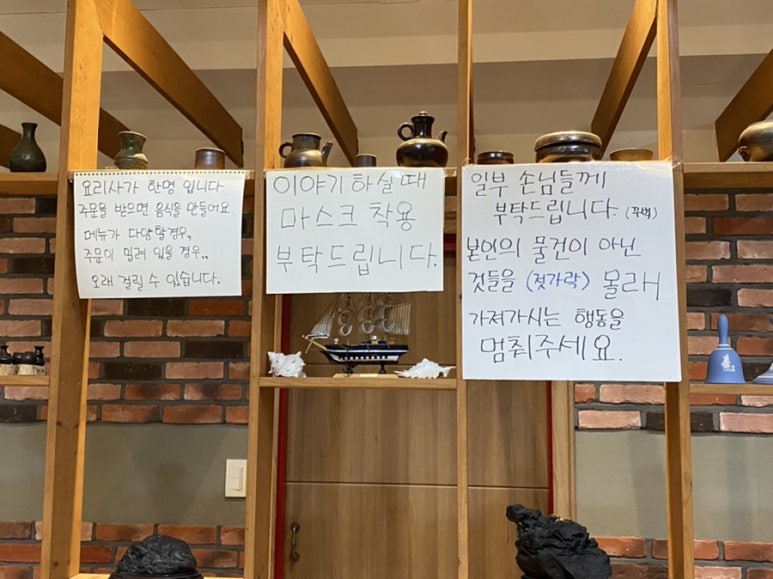 요리사가 한명 입니다.
주문을 받으면 음식을 만들어요.
메뉴가 다양할경우,
주문이 밀려 있을 경우..
오래 걸릴 수 있습니다.
이야기 하실 때
마스크 착용
부탁드립니다.
일부 손님들께
부탁드립니다. (꾸벅)
본인의 물건이 아닌
것들을 (젓가락) 몰래
가져가시는 행동을
멈춰주세요.